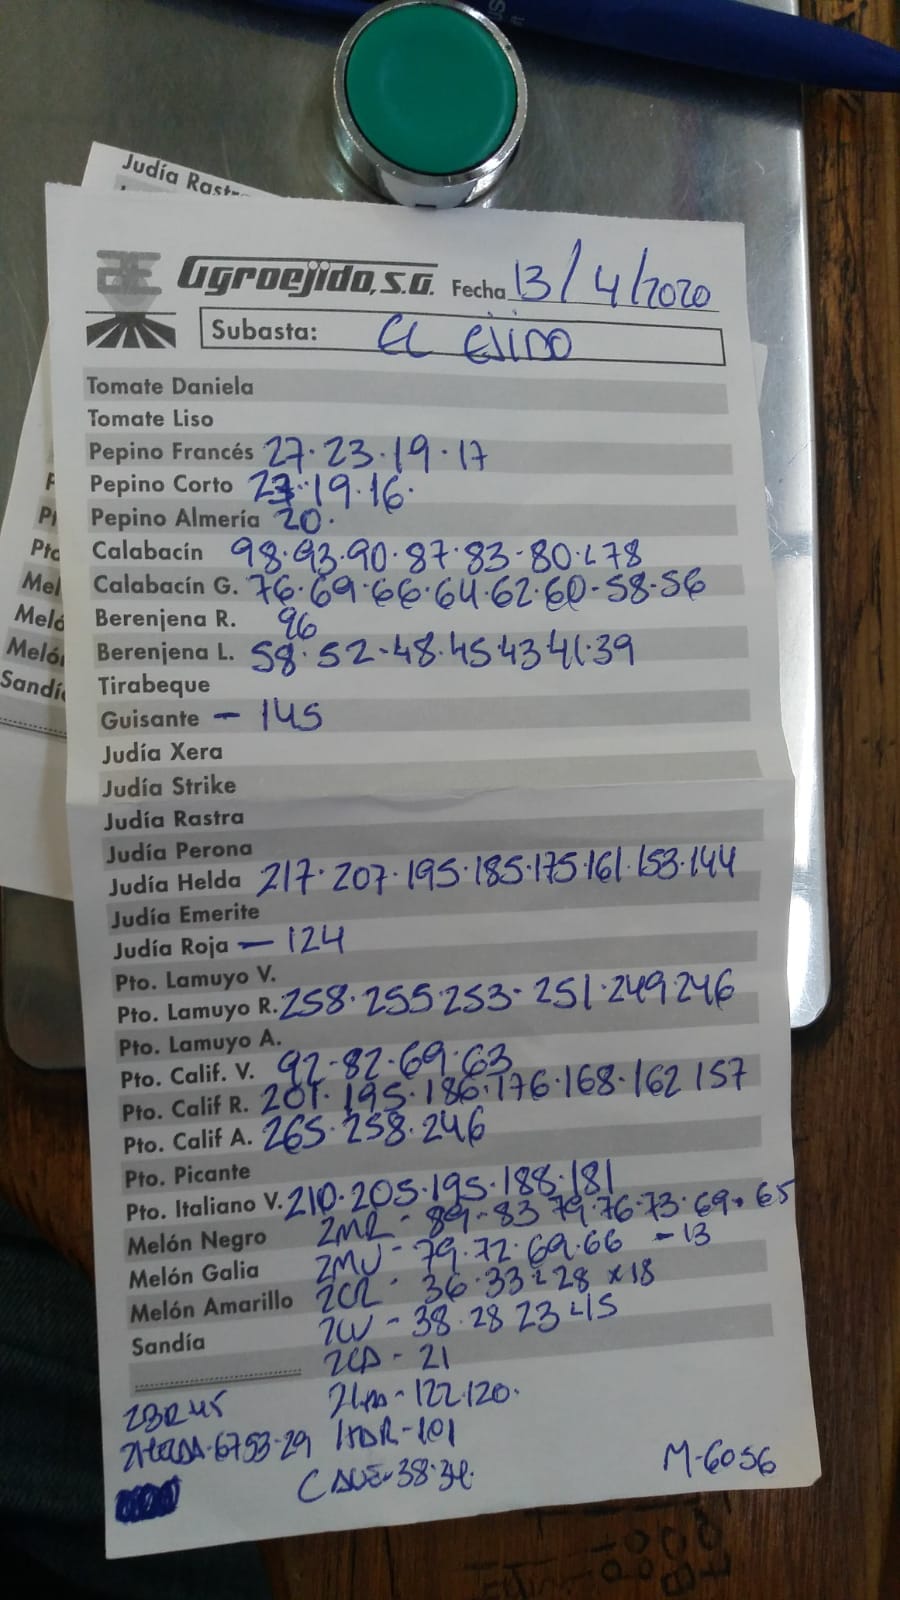 Judía Rastr
Agroejido, S.A. Fecha 13/4/2020
Subasta: EL EJIDO
Tomate Daniela
Tomate Liso
Pepino Francés 27·23·19·17
Pepino Corto 19·16·
Pepino Almería 20·
Calabacín 98·93·90·87·83-80·L78
Calabacín G. 76·69·66·64·62·60-58-56
Berenjena R. 96
Berenjena L. 58·52-48·45·43 41·39
Tirabeque
Guisante - 145
Judía Xera
Judía Strike
Judía Rastra
Judía Perona
Judía Helda 217·207·195·185·175·161·153·144
Judía Emerite
Judía Roja - 124
Pto. Lamuyo V.
Pto. Lamuyo R. 258·255·253-251·249·246
Pto. Lamuyo A.
Pto. Calif. V. 92-82·69·63
Pto. Calif R. 201·195·186·176·168·162 157
Pto. Calif A. 265·258·246
Pto. Picante
Pto. Italiano V. 210·205·195·188·181
Melón Negro 2MR - 89-83 79·76·73·69·65
Melón Galia 2MV - 79·72·69·66 - 13
Melón Amarillo 2CR - 36·33 28 x18
Sandía 2CV - 38·28 23 15
2CA - 21
122·120·
2BR 45
67 53-29 101
38·34·
M-6056
Pto
Mel
Meló
Meló
Sandí